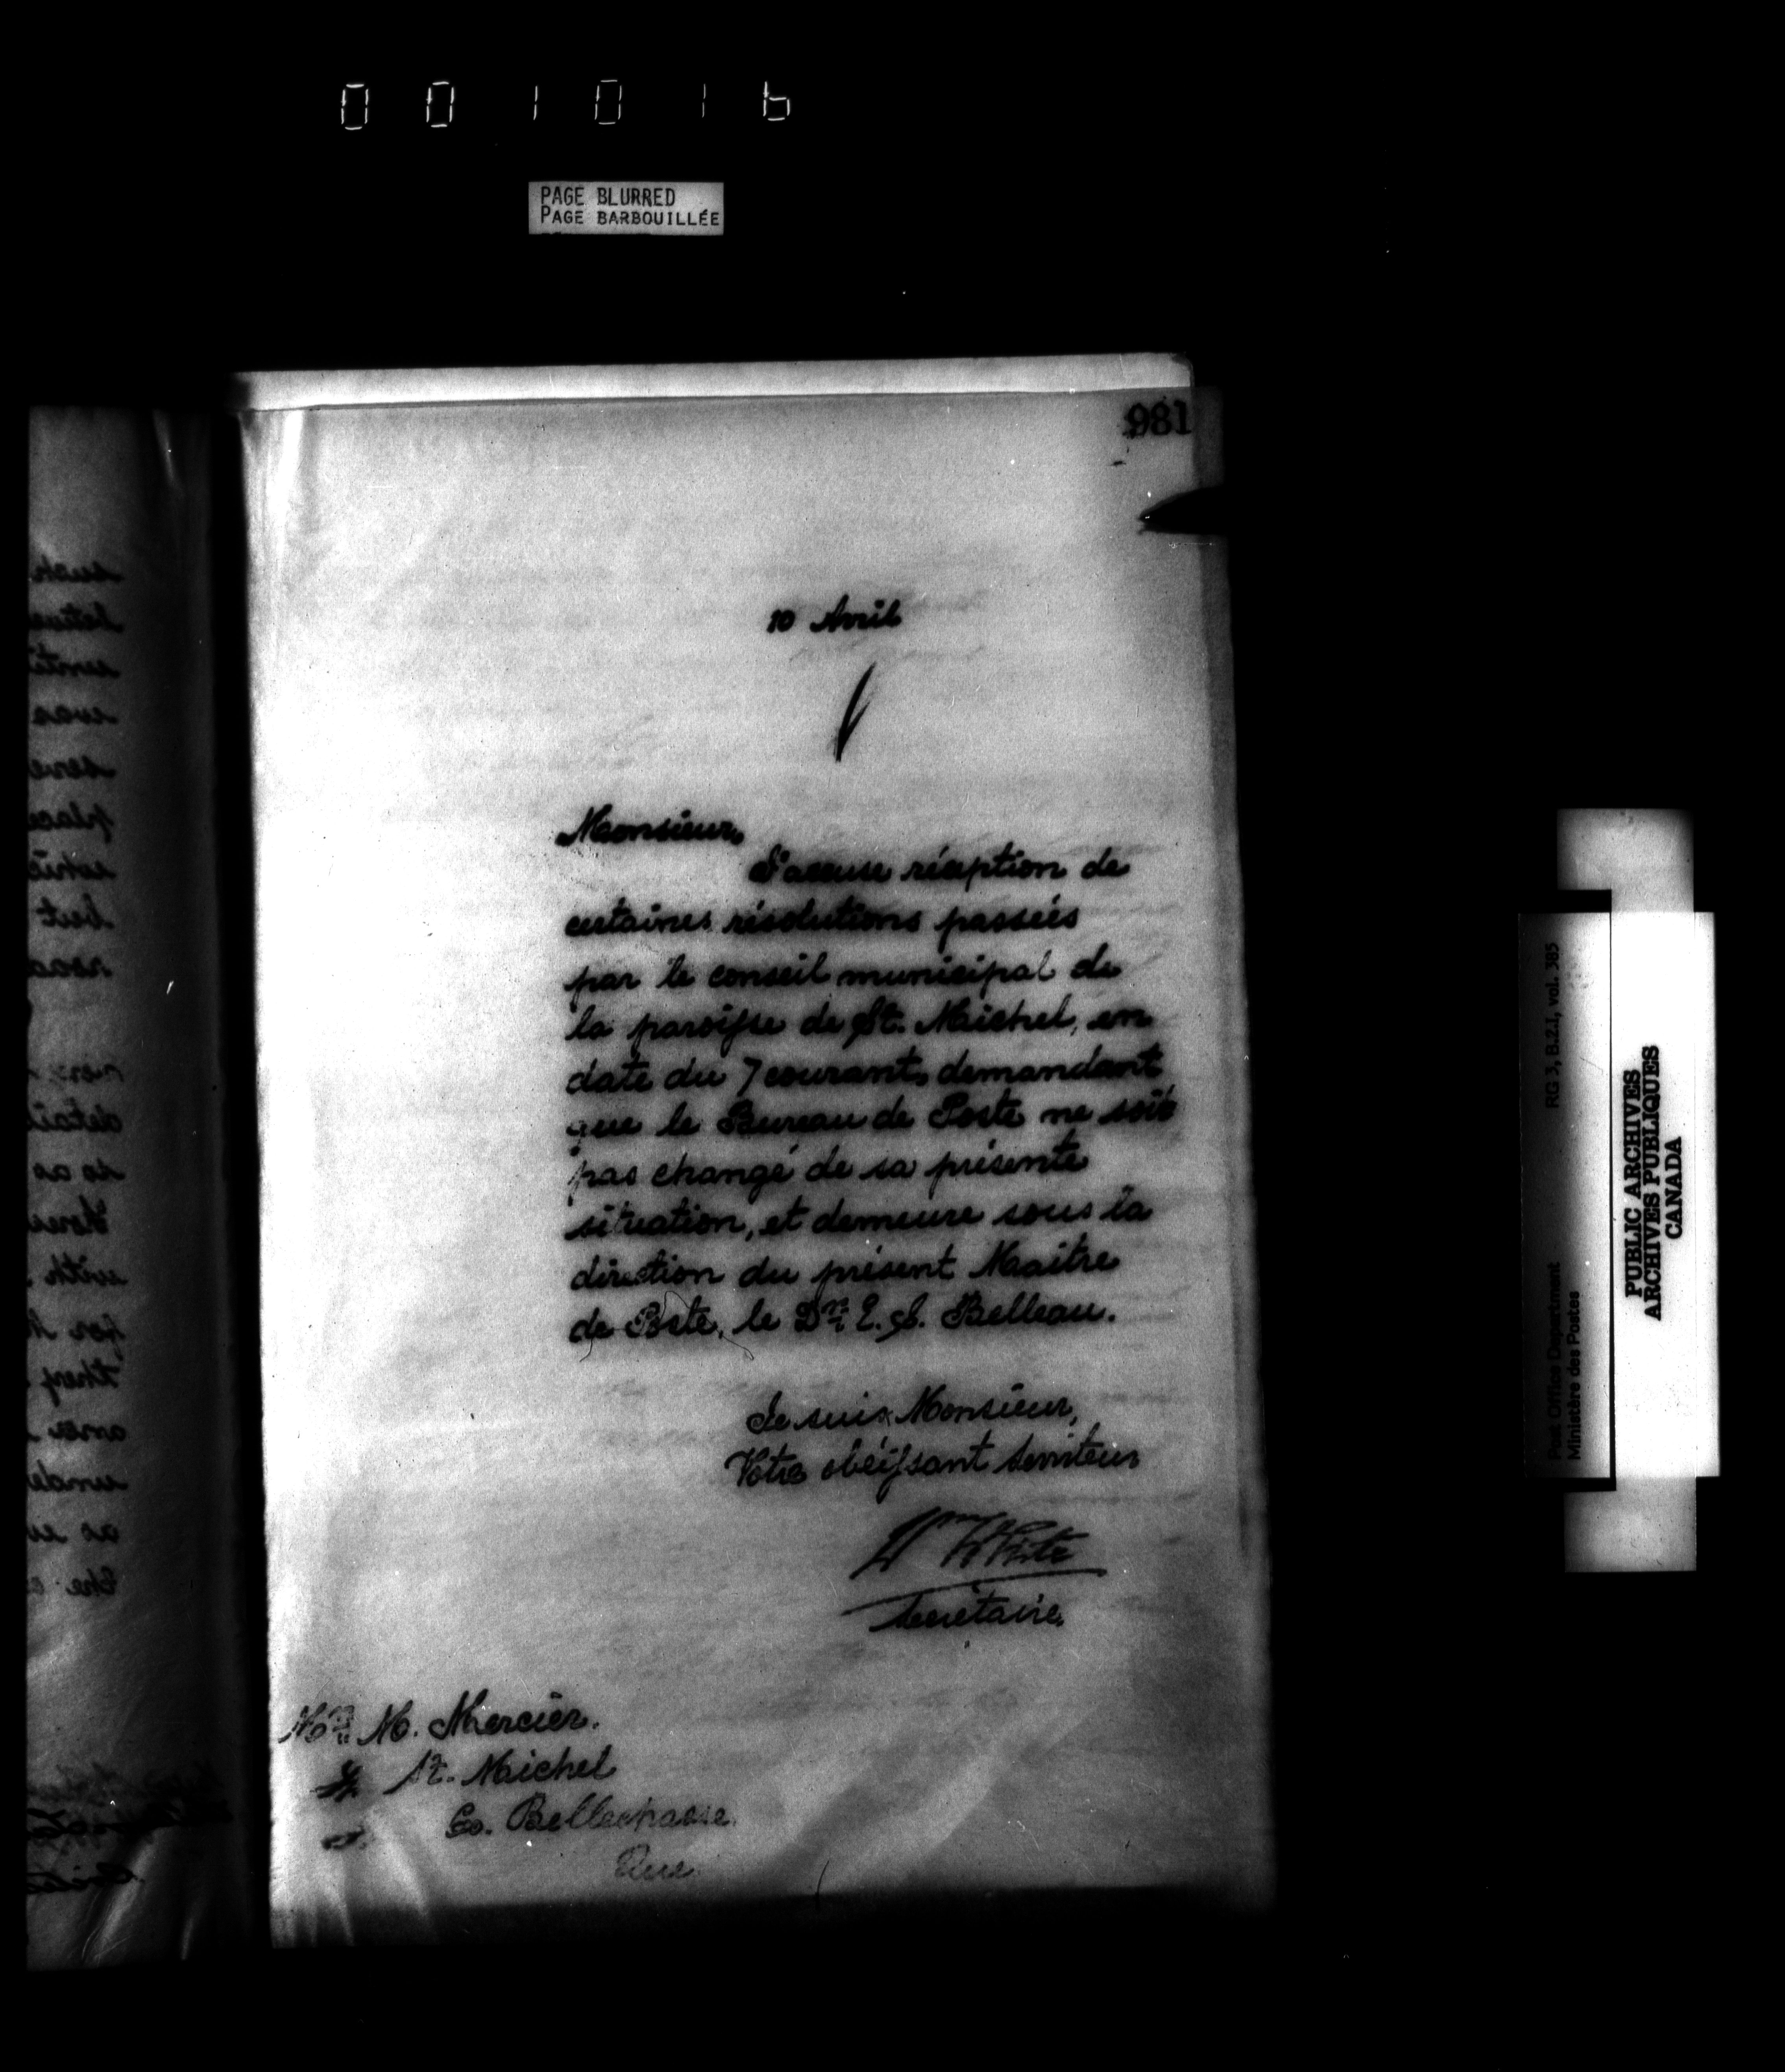 001016
PAGE BLURRED
PAGE BARBOUILLÉE
981
10 Avril
Monsieur,
J'accuse réception de
certaines résolutions passées
par le conseil municipal de
la paroisse de St. Michel, en
date du 7 courant, demandant
que le Bureau de Poste ne soit
pas changé de sa présente
situation, et demeure sous la
direction du présent Maître
de Poste, le Dr. E. S. Belleau.
Je suis, Monsieur,
Votre obéissant Serviteur
Wm White
Secrétaire.
M. Mercier.
St. Michel
Co. Bellechasse
Que
such
place
but
detail
so as
with
for
they
unde
the
Post Office Department
Ministère des Postes
RG 3, B.Z.I, vol. 385
PUBLIC ARCHIVES
ARCHIVES PUBLIQUES
CANADA